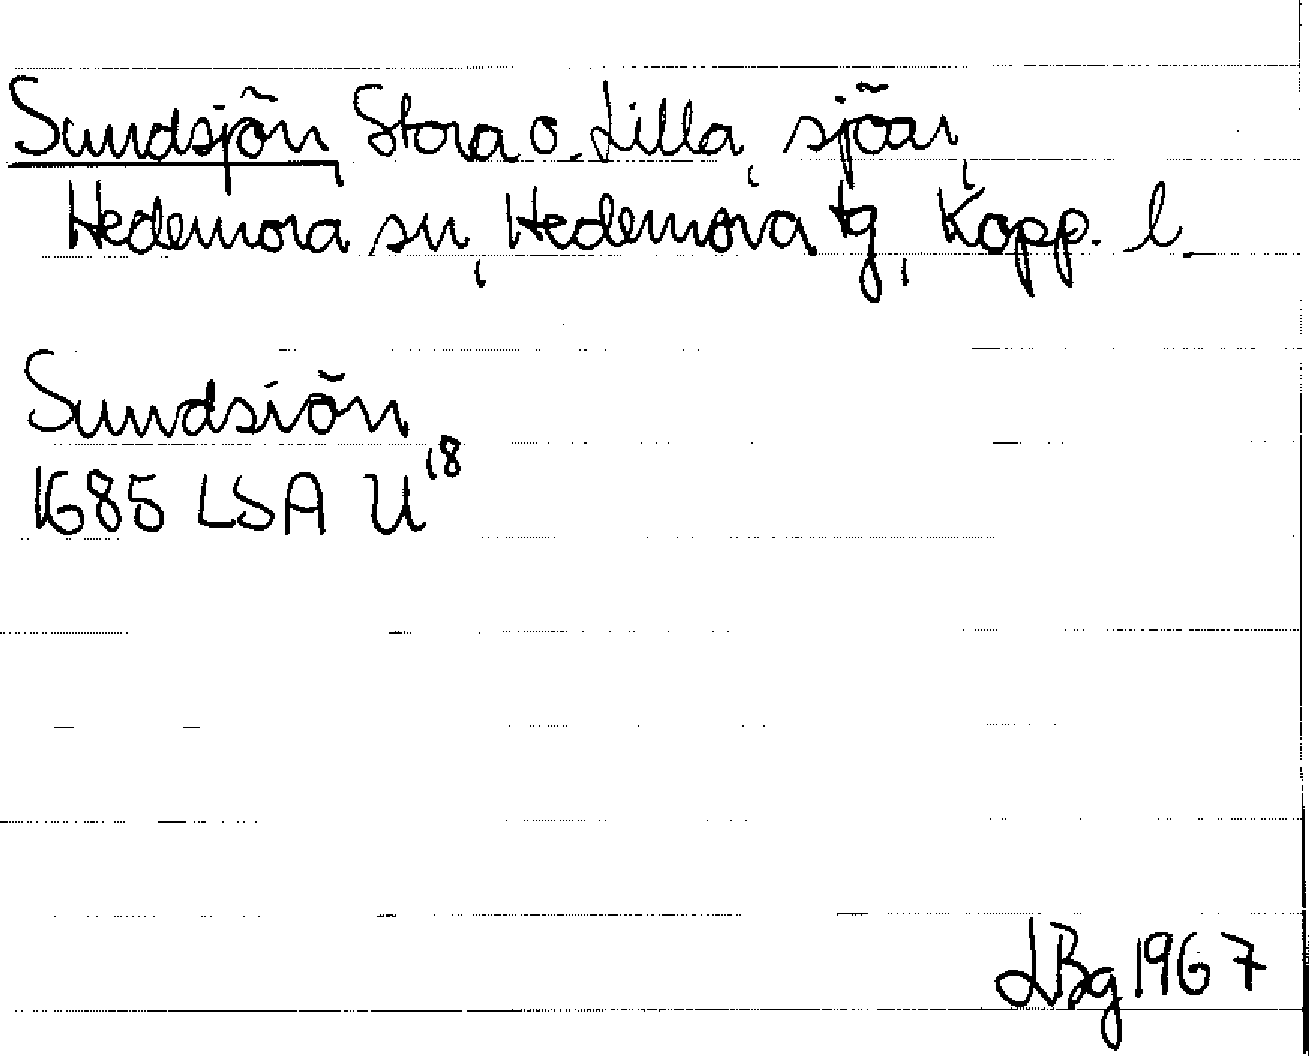 Sundsjön, Stora o. Lilla, sjöar,
Hedemora sn, Hedemora tg, Kopp. l.
Sundsiön
1685 LSA U 18
LBg 1967